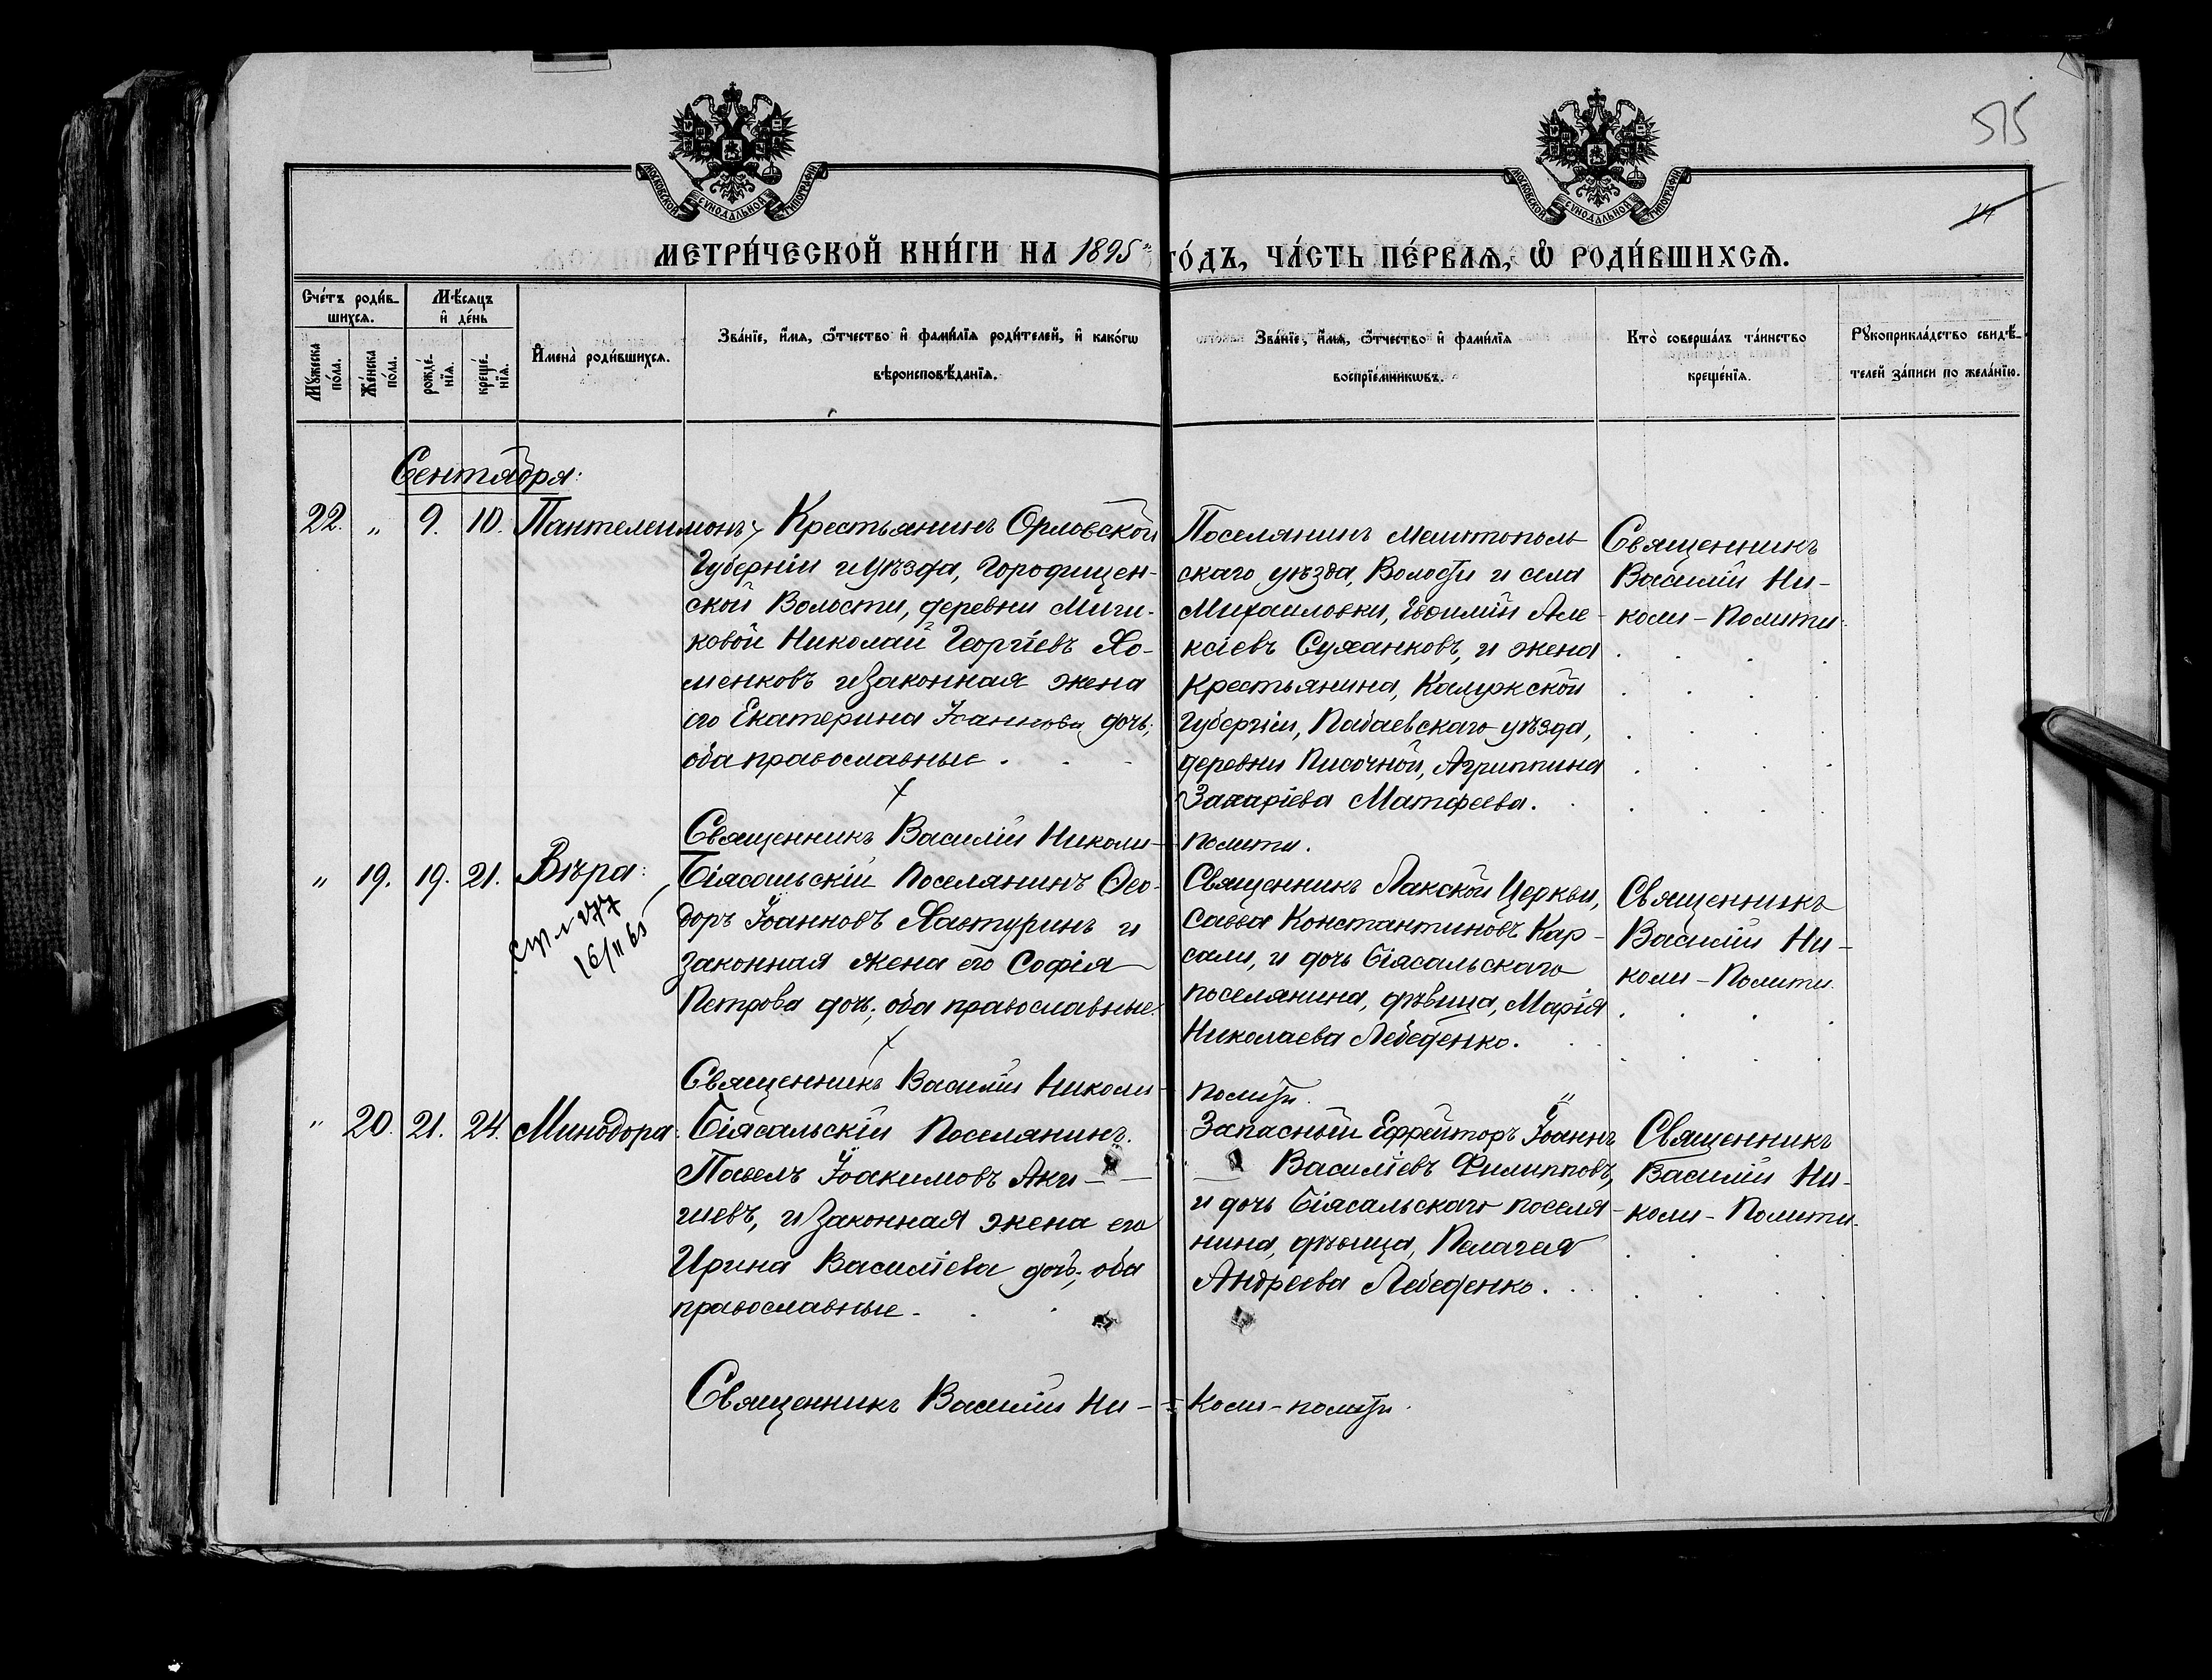 515
14
МОСКОВСКОЙ СУНОДАЛЬНОЙ ТИПОГРАФІИ
МОСКОВСКОЙ СУНОДАЛЬНОЙ ТИПОГРАФІИ
МЕТРИ́ЧЕСКОЙ КНИ́ГИ НА 1895й ГО́ДЪ, ЧА́СТЬ ПЕ́РВАѦ, Ѡ РОДИ́ВШИХСѦ.
Сче́тъ роди́в-
шихсѧ.
Мѣ́сѧцъ
и҆ де́нь
Мꙋ́жеска по́ла.
Же́нска по́ла.
рожде́-нїѧ.
креще́-нїѧ.
И҆мена̀ роди́вшихсѧ.
Зва́нїе, и҆́мѧ, ѻ҆́тчество и҆ фами́лїѧ роди́телей, и҆ како́гѡ
вѣроисповѣ́данїѧ.
Зва́нїе, и҆́мѧ, ѻ҆́тчество и҆ фами́лїѧ
воспрїе́мникѡвъ.
Кто̀ соверша́лъ та́инство
креще́нїѧ.
Рꙋкоприкла́дство свидѣ́-
телей за́писи по жела́нїю.
Сентября:
22. " 9. 10. Пантелеимонъ
Крестьянинъ Орловской
Губерніи и Уѣзда, Городищен-
ской Волости, деревни Миги-
ковой Николай Георгіевъ Хо-
менковъ и законная жена
его Екатерина Іоаннова дочь;
оба православные.
Поселянинъ Мелитополь
скаго уѣзда, Волости и села
Михаиловки, Евѳимій Але-
ксіевъ Суханковъ, и жена
Крестьянина, Калужской
Губерніи, уѣзда,
деревни Писочной, Агриппина
Захаріева Матфеева.
Священникъ
Василій Ни-
коли-Полити.
Священникъ Василій Николи-Полити.
" 19. 19. 21. Вѣра:
Стр. № 277
16/II 65
Біясальскій Поселянинъ Ѳео-
доръ Іоанновъ Хавтуринъ и
законная жена его Софія
Петрова дочь; оба православные.
Священникъ Лакской Церкви,
Савва Константиновъ Кар-
сали, и дочь Біясальскаго
поселянина, дѣвица, Марія
Николаева Лебеденко.
Священникъ
Василій Ни-
коли-Полити.
Священникъ Василій Николи-Полити.
" 20. 21. 24. Минодора.
Біясальскій Поселянинъ
Павелъ Іоакимовъ Аки-
шевъ, и законная жена его
Ирина Василіева дочь; оба
православные.
Запасный Ефрейторъ Іоаннъ
Василіевъ Филипповъ,
и дочь Біясальскаго поселя-
нина, дѣвица, Пелагея
Андреева Лебеденко.
Священникъ
Василій Ни-
коли-Полити.
Священникъ Василій Ни-коли-полити.